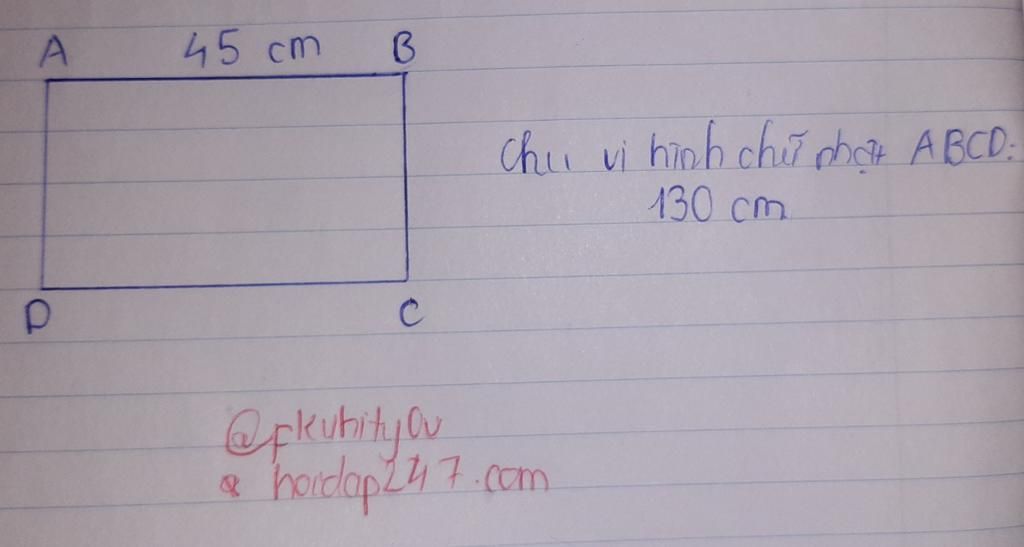 A 45 cm B
Chu vi hình chữ nhật ABCD:
130 cm
D C
hoidap247.com